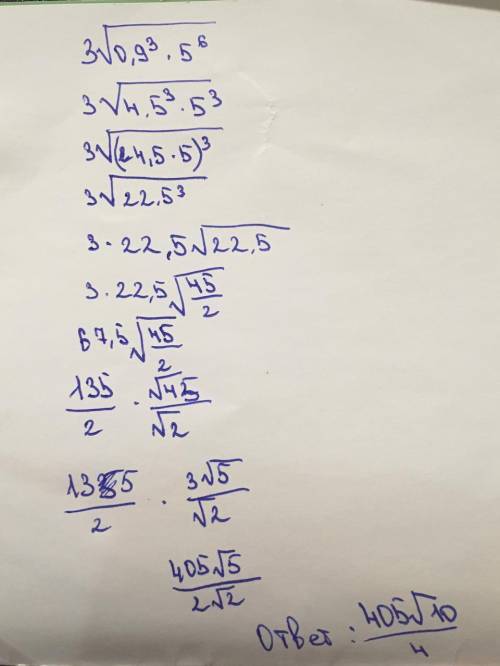 3√0,9³ · 5⁶
3√4,5³ · 5³
3√(4,5 · 5)³
3√22,5³
3 · 22,5√22,5
3 · 22,5√45/2
67,5√45/2
135/2 · √45/√2
135/2 · 3√5/√2
405√5/2√2
Ответ: 405√10/4